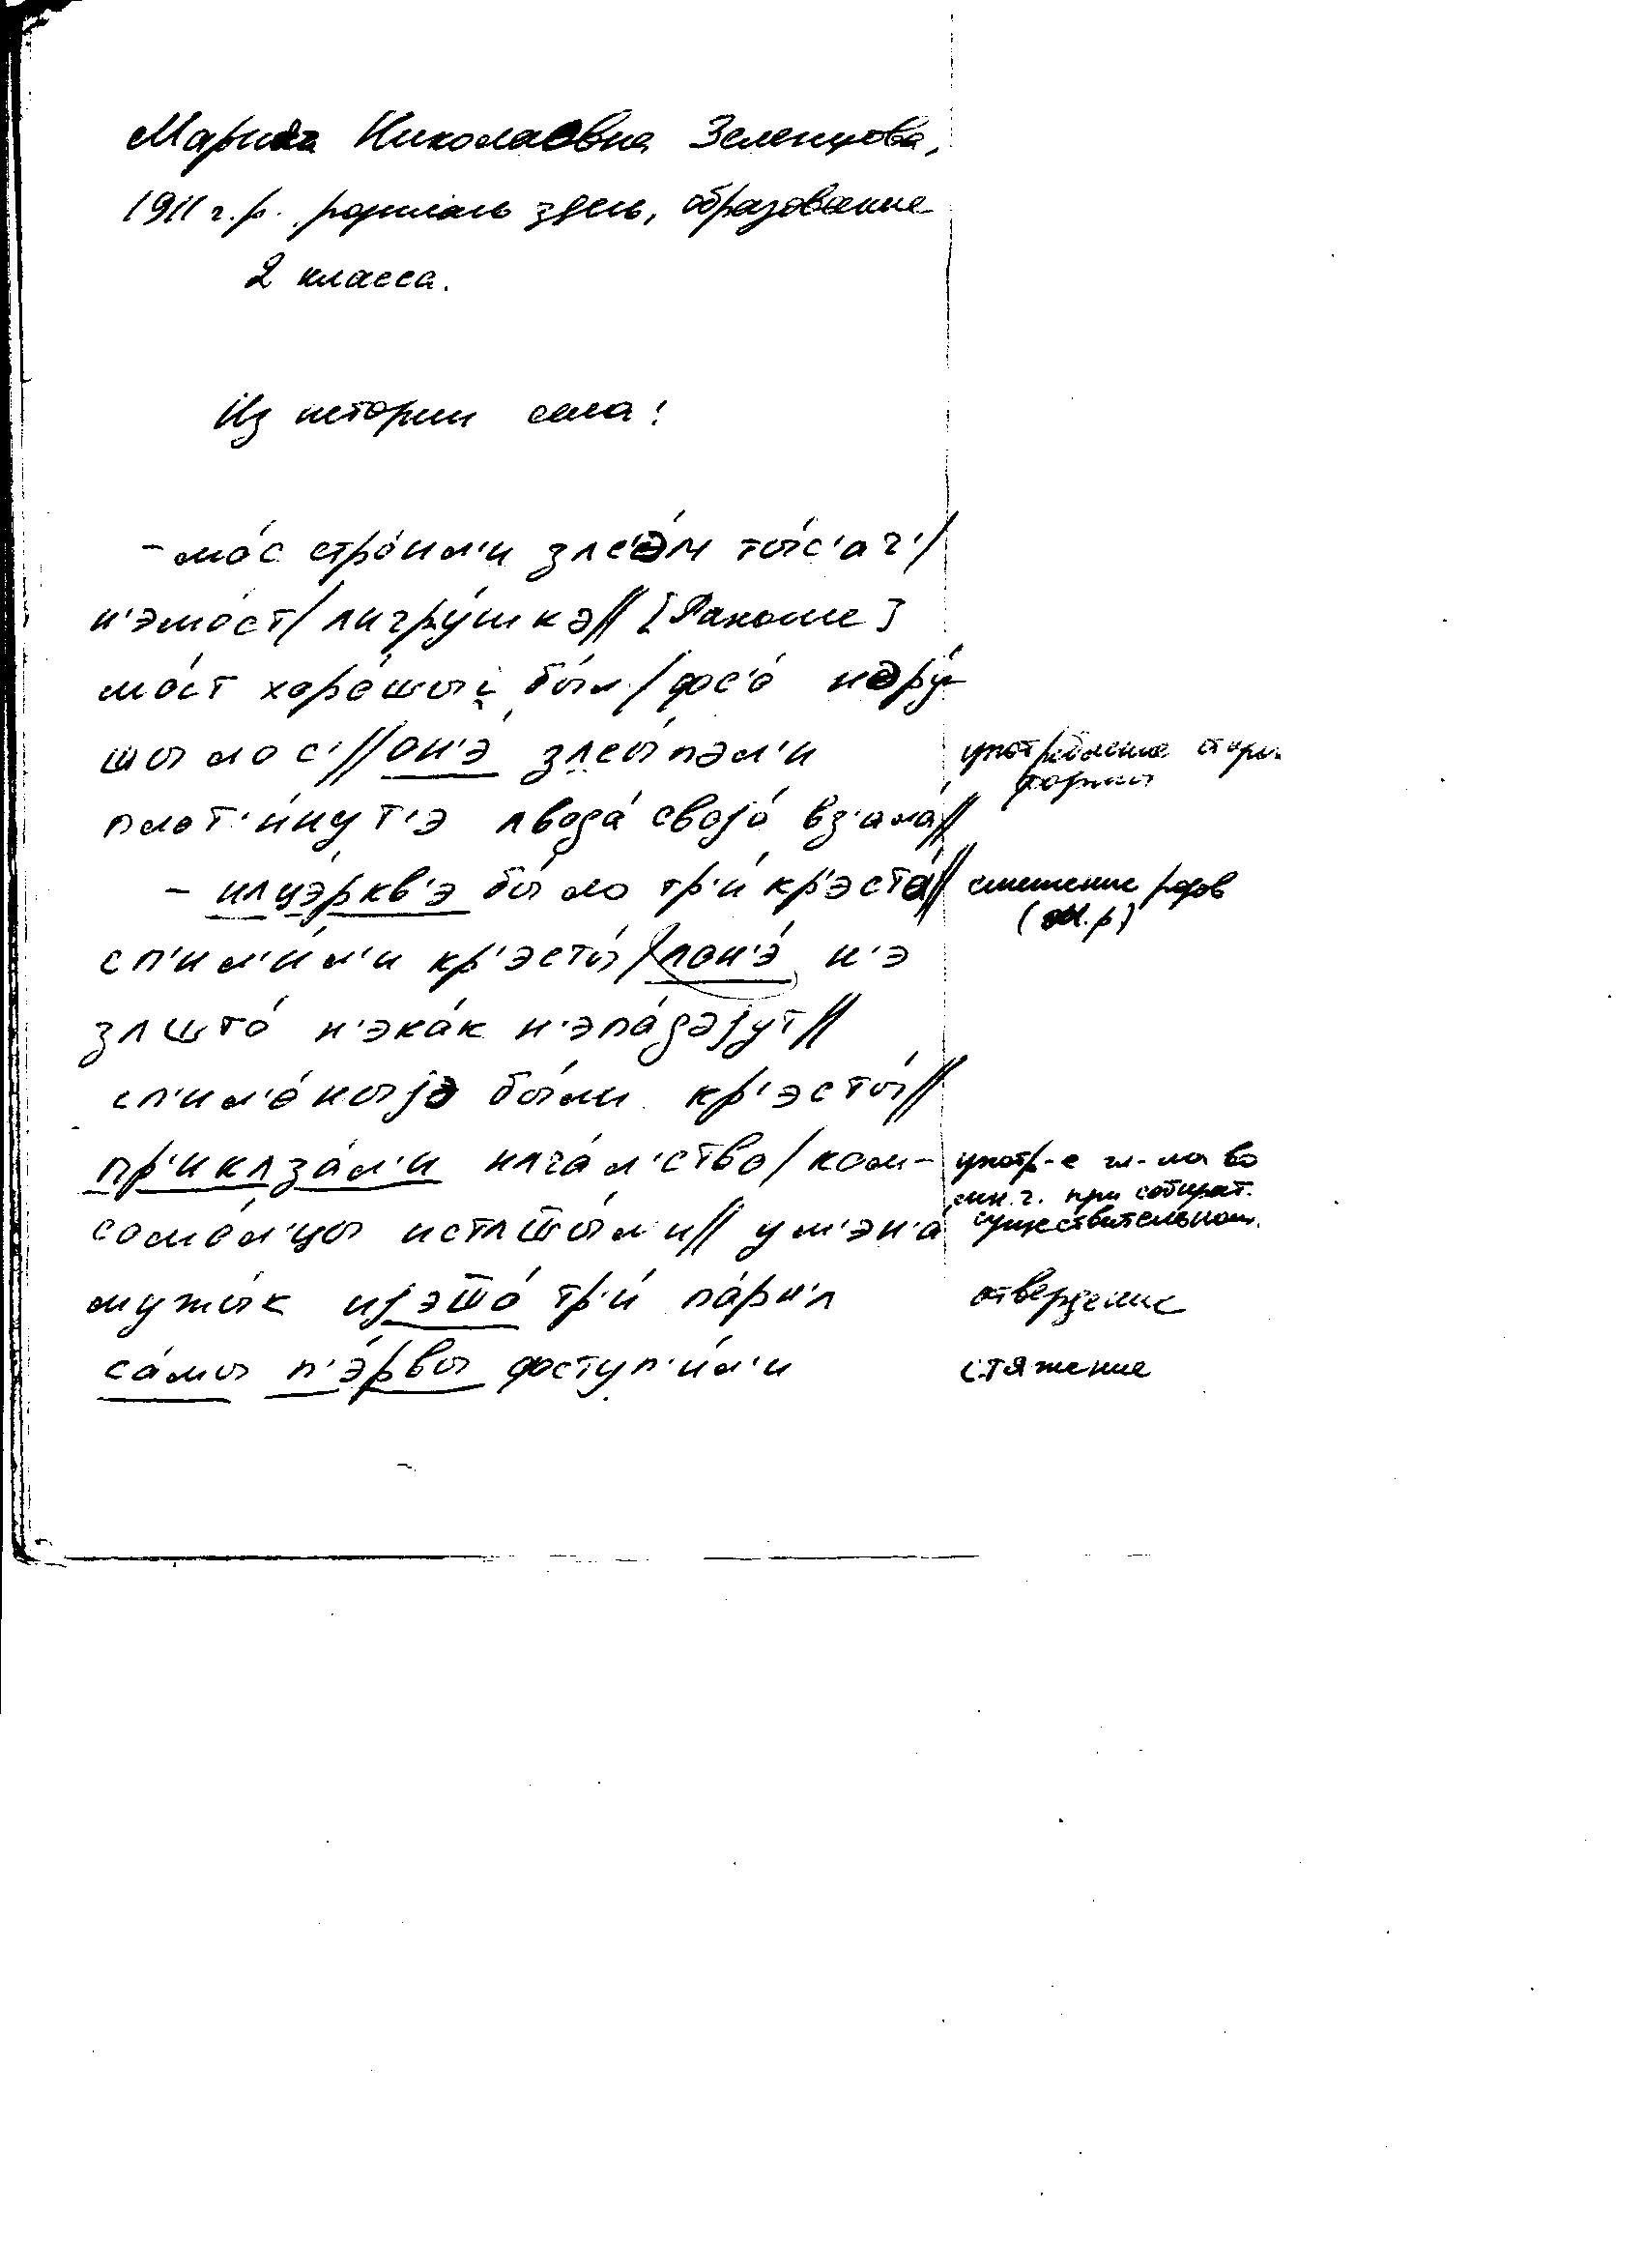 Марина Николаевна Зеленцова,
1911 г.р. родилась здесь, образование
2 класса.
Из истории села:
– мо́с стро́ил'и зʌс'э́м ты́с'ач'/
н'эмо́ст/ʌигру́шкə// [Ракоме]
мо́ст хоро́шыи̯ бы́л/фс'о́ нəру́-
шылос'//он'э́ зʌсы́пəл'и
плот'и́ну т'э ʌвода́ својо́ вз'ала́//
– нʌцэ́ркв'э бы́ло тр'и́ кр'эста́//
сп'ил'и́л'и кр'эсты́/ʌон'э́ н'э
зʌшто́ н'эка́к н'эпа́дəјут//
сп'ил'о́ныјə бы́ли кр'эсты́//
пр'икʌза́л'и нʌча́л'ство/ком-
сомо́л'цы истʌш̅ы́л'и// ум'эн'а́
мужы́к ијэш̅о́ тр'и́ па́рн'ʌ
са́мы п'э́рвы фступ'и́л'и
употребление стар.
формы
смешение родов
(м.р)
употр-е гл-ла во
мн.ч. при собират.
существительном.
отвердение
стяжение